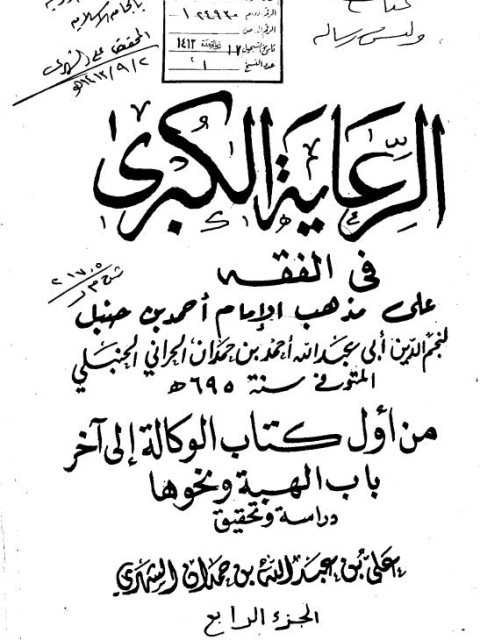 كتاب
وليس رسالة
الرقم العام ١٠٢٤٩٣
تاريخ التسجيل ١٤١٣
عدد النسخ ١
المحقق علي الشهري
١٤١٣/٩/٢هـ
الرِّعَاية الكُبرى
في الفقه
على مذهب الإمام أحمد بن حنبل
لنجم الدين أبي عبد الله أحمد بن حمدان الحراني الحنبلي
المتوفى سنة ٦٩٥ هـ
من أول كتاب الوكالة إلى آخر
باب الهبة ونحوها
دراسة وتحقيق
علي بن عبد الله بن حمدان الشهري
الجزء الرابع